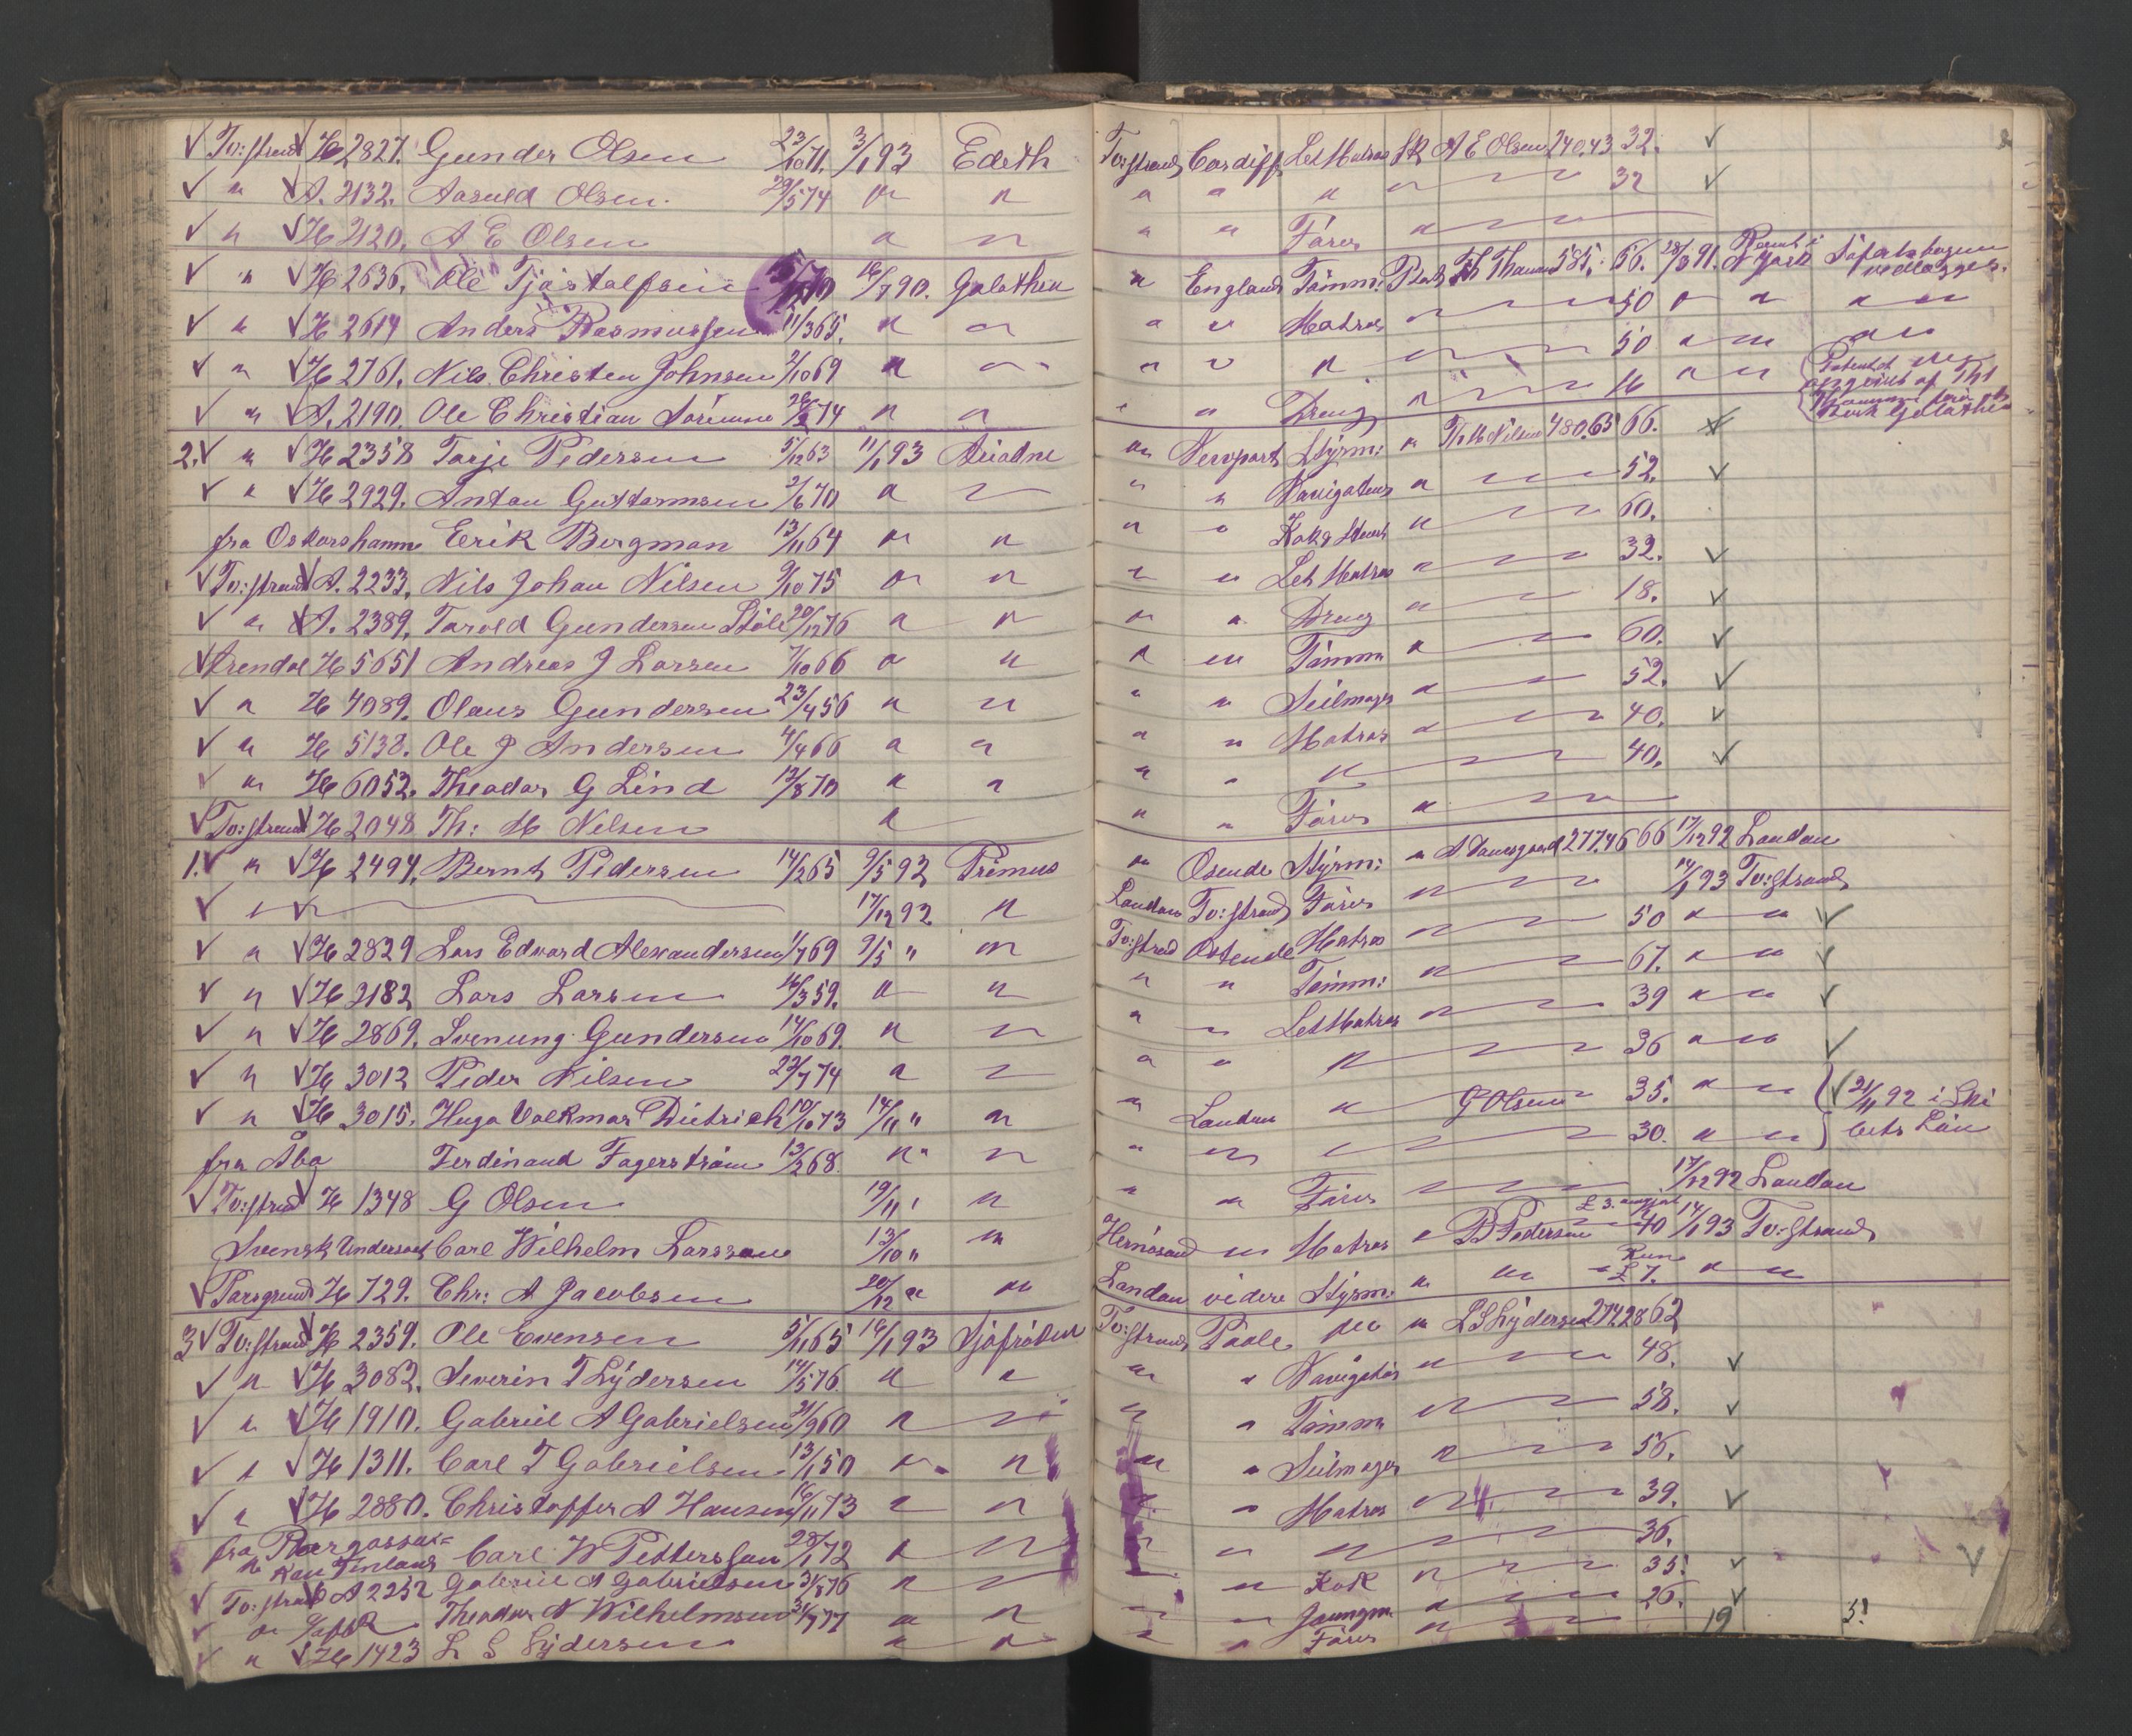 Tv:strand H 2827. Gunder Olsen 23/10 71. 3/1 93 Edeth
" A. 2132. Aasuld Olsen. 29/5 74 " "
" H 2120. A E Olsen " "
" H 2636. Ole Tjøstolfsen 16/7 90. Galathea
" H 2614 Anders Rasmussen 11/3 65. " "
" H 2761. Nils Christen Johnsen 2/10 69 " "
" A. 2190. Ole Christian 74 " "
2. " H 2358 Tarje Pedersen 5/12 63 11/1 93 Ariadne
" H 2929. Anton Guttormsen 2/6 70 " "
fra Oskarshamn Erik Bergman 13/11 64 " "
Tv:strand A. 2233. Nils Johan Nilsen 9/10 75 " "
" A. 2389. Tarold Gundersen Støle 20/12 76 " "
Arendal H 5651 Andreas J Larsen 7/10 66 " "
" H 4089. Olaus Gundersen 23/4 56 " "
" H 5138. Ole J Andersen 4/4 66 " "
" H 6052. Theodor G Lind 12/8 70 " "
Tv:strand H 2048 Th: M Nilsen "
1. " H 2494. Bernt Pedersen 14/2 65 9/5 92 Primus
" " 17/12 92 "
" H 2829 Lars Edvard Alexandersen 1/7 69 9/5 " "
" H 2182 Lars Larsen 16/3 59. " "
" H 2869. Svenung Gundersen 14/10 69. " "
" H 3012 Peder Nilsen 22/7 74 " "
" H 3015. Hugo Volkmar Dietrich 10/10 73 14/11 " "
fra Åbo Ferdinand Fagerström 13/2 68. " "
Tv:strand H 1348 G Olsen 19/11 " "
Svensk Undersaat Carl Wilhelm Larsson 13/10 " "
Porsgrund H 729. Chr: A Jacobsen 20/12 " "
3 Tv:strand H 2359. Ole Evensen 5/11 65 16/1 93 Sjøfröken
" H 3082. Severin T Lydersen 14/5 76. " "
" H 1910. Gabriel A Gabrielsen 21/9 60 " "
" H 1311. Carl T Gabrielsen 13/1 50 " "
" H 2880. Christoffer A Hansen 16/11 73 " "
fra Carl W Pettersson 28/1 72 " "
Finland
Tv:strand A 2252 Gabriel A Gabrielsen 31/8 76 " "
" Theodor N Wilhelmsen 31/7 77 " "
" H 1423 L S Lydersen " "
Tv:strand Cardiff Let Matros Sk A E Olsen 240.43 32.
" " " " 32
" " Fører "
" England Tømm: Th Thommesen 585. 56. 28/8 91. Rømt i N York Søfartsbogen vedlægges.
" " Matros 50 " " " "
" " " 50 " " " "
" " Dreng " 16 " "
" Newport Styrm: " Th M Nilsen 480.65 66.
" " Navigateur " 52.
" " Kok & Stuert " 60.
" " Let Matros " 32.
" " Dreng " 18.
" " Tømm " 60.
" " Seilmager " 52.
" " Matros " 40.
" " " 40.
" " Fører "
" Osende Styrm: " A Daasgaard 277.46 66 17/12 92 London
London Tv:strand Fører " 14/1 93 Tv:strand
Tv:strand Ostende Matros " 50 " "
" " Tømm: " 67. " "
" " Let Matros " 39 " "
" " " 36 " "
" London " G Olsen 35. " " 21/11 92 i Ski
" " 30. " " bets Lön
" " Fører 17/12 92 London
Hernösand " Matros " B Pedersen £ 3. 40 14/1 93 Tv:strand
London videre Styrm: " " Run £ 7. " "
Tv:strand Poole " L S Lydersen 274.28 62
" " Navigatör " 48.
" " Tømm " 58.
" " Seilmager " 56.
" " Matros " 39.
" " " 36.
" Kok " 35.
" " Jaungm " 26.
" " Fører " 19 51